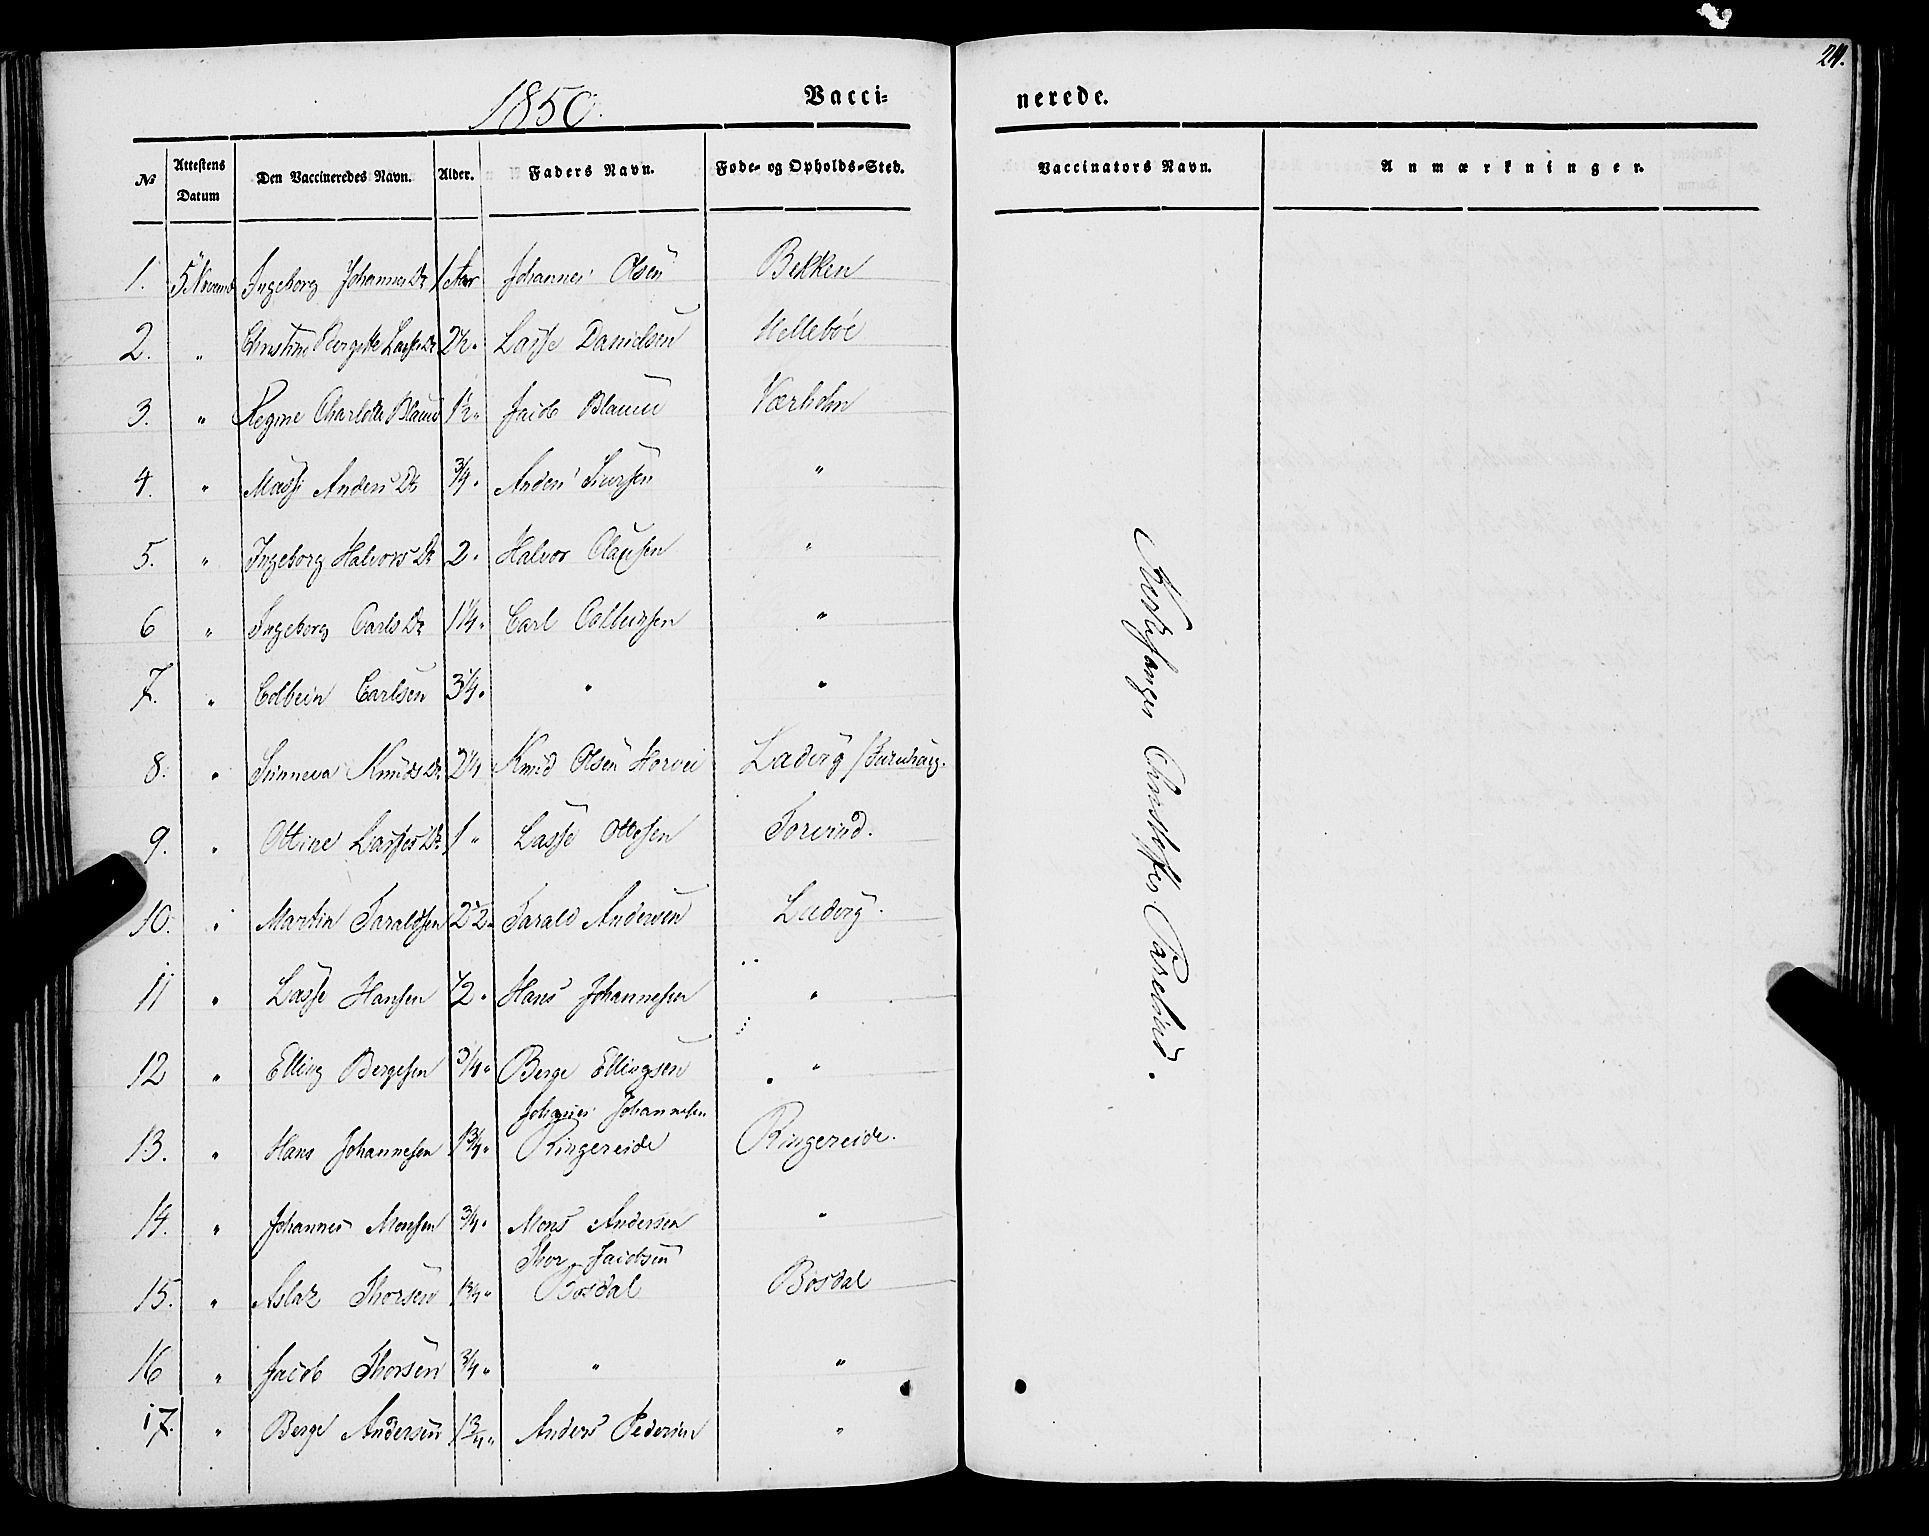 24.
1850.
Vacci-
nerede.
No
Attestens Datum
Den Vaccineredes Navn.
Alder.
Faders Navn.
Føde- og Opholds-Sted.
Vaccinators Navn.
Anmærkninger.
1. 5 Novemb Ingeborg Johannes Dr 1 Aar Johannes Olsen Bekken
2. " Christine Bergitte Lasses Dr 2½ " Lasse Danielsen Hellebøe
3. " Regine Charlotte Blauw 1½ " Jacob Blauw Værholm
4. " Anders Dr ¾ " Anders "
5. " Ingeborg Halvors Dr 2 " Halvor Clausen "
6 " Ingeborg Carls Dr 1¼ " Carl Colbeinsen "
7. " Colbein Carlsen 3¼ " " "
8. " Sinneva Knuds Dr 2¼ Knud Olsen Horvei Ladvig
9. " Ottine Lasses Dr 1 " Lasse Ottesen
10. " Martin Taraldsen 2½ " Tarald Andersen Ladvig.
11 " Lasse Hansen ½ " Hans Johannesen "
12 " Elling Bergesen ¾ " Berge Ellingsen "
Johannes Johannesen
13. " Hans Johannesen 1¾ " Ringereide Ringereide.
14. " Johannes Monsen ¾ " Mons Andersen "
Thor Jacobsen
15. " Aslak Thorsen 1¾ " Bosdal Bosdal
16 " Jacob Thorsen ¾ " " "
17. " Berge Andersen 1¾ " Anders Pedersen "
Kirkesanger Christoffer